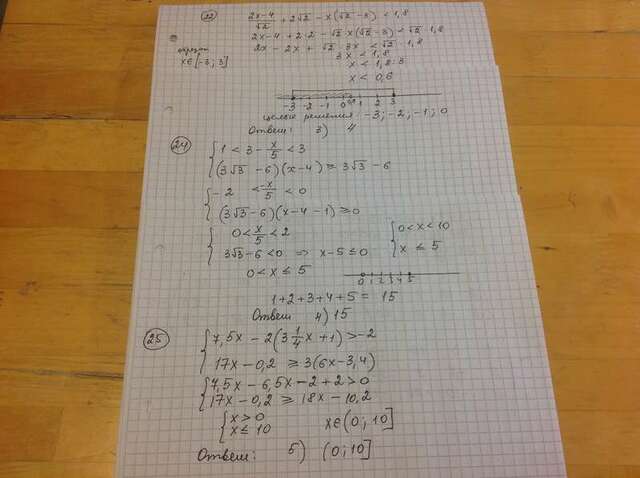 22 (2x-4)/√2 + 2√2 - x(√2-3) < 1,8
2x-4 + 2·2 - √2 x(√2-3) < √2·1,8
отрезок 2x - 2x + √2·3x < √2·1,8
x∈[-3; 3] 3x < 1,8
x < 1,8:3
x < 0,6
-3 -2 -1 0 0,6 1 2 3
целые решения -3; -2; -1; 0
Ответ: 3) 4
24 { 1 < 3 - x/5 < 3
(3√3 - 6)(x-4) ≥ 3√3 - 6
{ -2 < -x/5 < 0
(3√3-6)(x-4-1) ≥ 0
{ 0 < x/5 < 2 { 0 < x < 10
3√3-6 < 0 ⇒ x-5 ≤ 0 x ≤ 5
0 < x ≤ 5
0 1 2 3 4 5
1+2+3+4+5 = 15
Ответ 4) 15
25 { 7,5x - 2(3 1/4 x + 1) > -2
17x - 0,2 ≥ 3(6x-3,4)
{ 7,5x - 6,5x - 2 + 2 > 0
17x - 0,2 ≥ 18x - 10,2
{ x > 0
x ≤ 10 x∈(0; 10]
Ответ: 5) (0; 10]